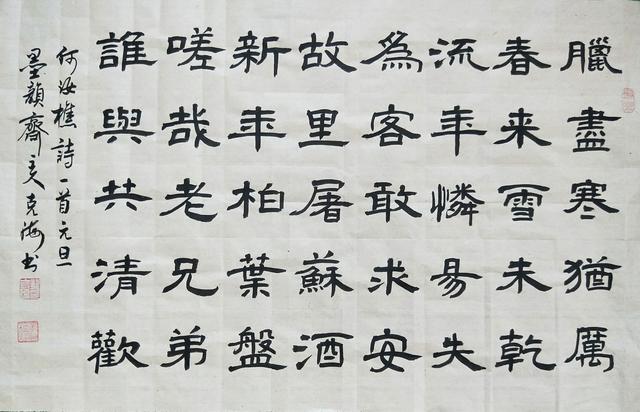 臘盡寒猶厲
春来雪未乾
流年憐易失
爲客敢求安
故里屠蘇酒
新年柏葉盤
嗟哉老兄弟
誰與共清歡
何汝樵詩一首元旦
墨韻齋主克海书